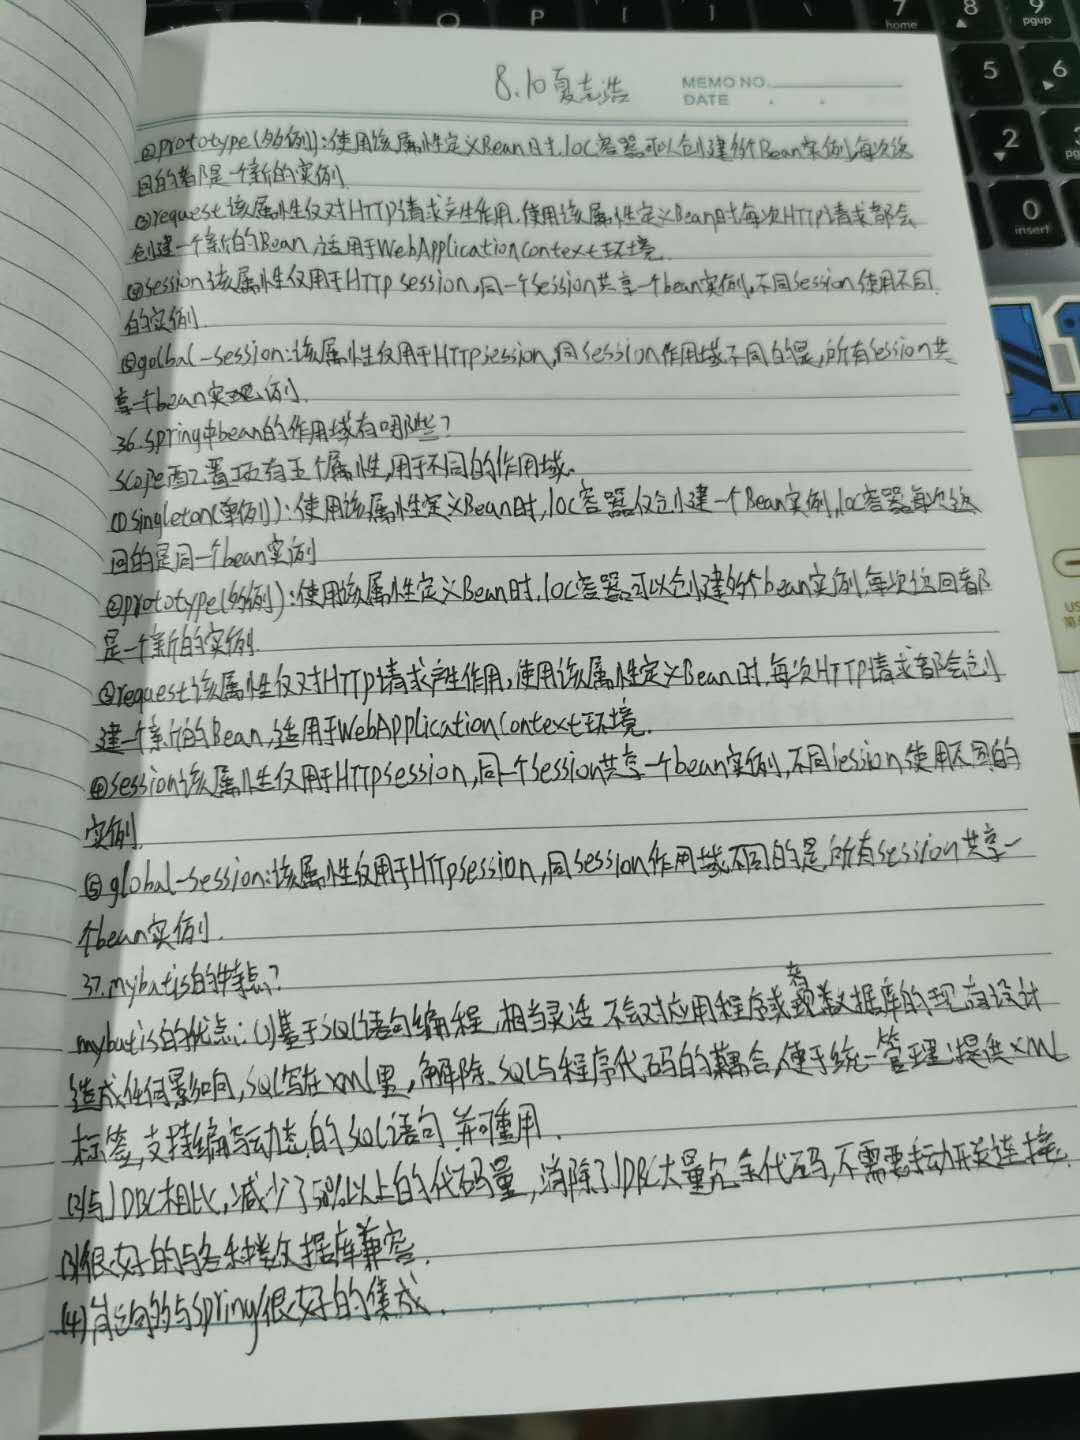 8.10夏志浩
MEMO NO.
DATE
②prototype(多例):使用该属性定义Bean时,IOC容器可以创建多个Bean实例,每次返
回的都是一个新的实例
③request该属性仅对HTTP请求产生作用,使用该属性定义Bean时每次HTTP请求都会
创建一个新的Bean,适用于WebApplicationContext环境.
④session该属性仅用于HTTP session,同一个session共享一个bean实例,不同session使用不同
的实例.
⑤golbal-session:该属性仅用于HTTPsession,同session作用域不同的是,所有session共
享一个bean实例.
36.spring中bean的作用域有哪些?
scope配置项有五个属性,用于不同的作用域.
①singleton(单例):使用该属性定义Bean时,IOC容器仅创建一个Bean实例,IOC容器每次返
回的是同一个bean实例
②prototype(多例):使用该属性定义Bean时,IOC容器可以创建多个bean实例,每次返回都
是一个新的实例.
③request该属性仅对HTTP请求产生作用,使用该属性定义Bean时,每次HTTP请求都会创
建一个新的Bean,适用于WebApplicationContext环境.
④session该属性仅用于HTTPsession,同一个session共享一个bean实例,不同session使用不同的
实例.
⑤global-session:该属性仅用于HTTPsession,同session作用域不同的是,所有session共享一
个bean实例.
37.mybatis的特点?
mybatis的优点:(1)基于SQL语句编程,相当灵活,不会对应用程序或者数据库的现有设计
造成任何影响,SQL写在XML里,解除SQL与程序代码的耦合,便于统一管理;提供XML
标签,支持编写动态的SQL语句,并可重用.
(2)与JDBC相比,减少了50%以上的代码量,消除了JDBC大量冗余代码,不需要手动开关连接.
(3)很好的与各种数据库兼容.
(4)能够与spring很好的集成.
7
home
8
9
pgup
5
6
2
3
0
insert
O
P